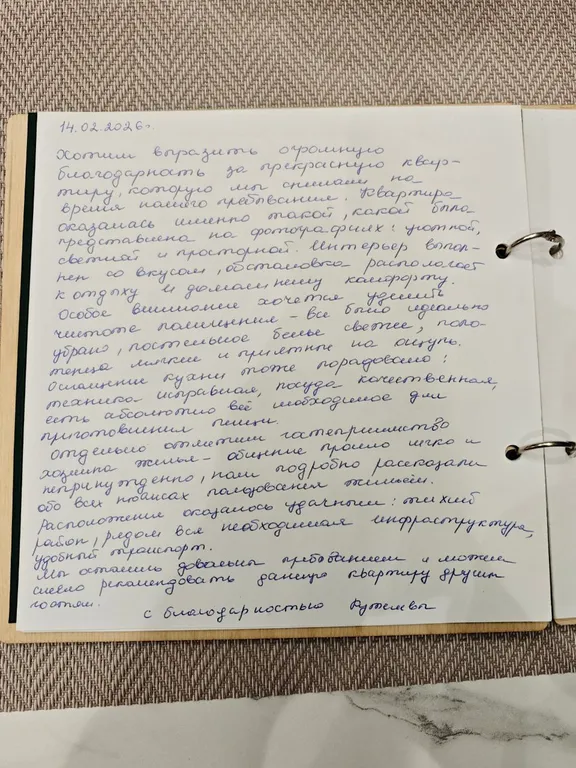 14.02.2026г.
Хотим выразить огромную
благодарность за прекрасную квар-
тиру, которую мы снимали на
время нашего пребывания. Квартира
оказалась именно такой, какой была
представлена на фотографиях: уютной,
светлой и просторной. Интерьер выпол-
нен со вкусом, обстановка располагает
к отдыху и домашнему комфорту.
Особое внимание хочется уделить
чистоте помещения – все было идеально
убрано, постельное белье свежее, поло-
тенца мягкие и приятные на ощупь.
Оснащение кухни тоже порадовало:
техника исправная, посуда качественная,
есть абсолютно всё необходимое для
приготовления пищи.
Отдельно отметим гостеприимство
хозяина жилья – общение прошло легко и
непринужденно, нам подробно рассказали
обо всех нюансах пользования жильем.
Расположение оказалось удачным: тихий
район, рядом вся необходимая инфраструктура,
удобный транспорт.
Мы остались довольны пребыванием и можем
смело рекомендовать данную квартиру другим
гостям.
с благодарностью